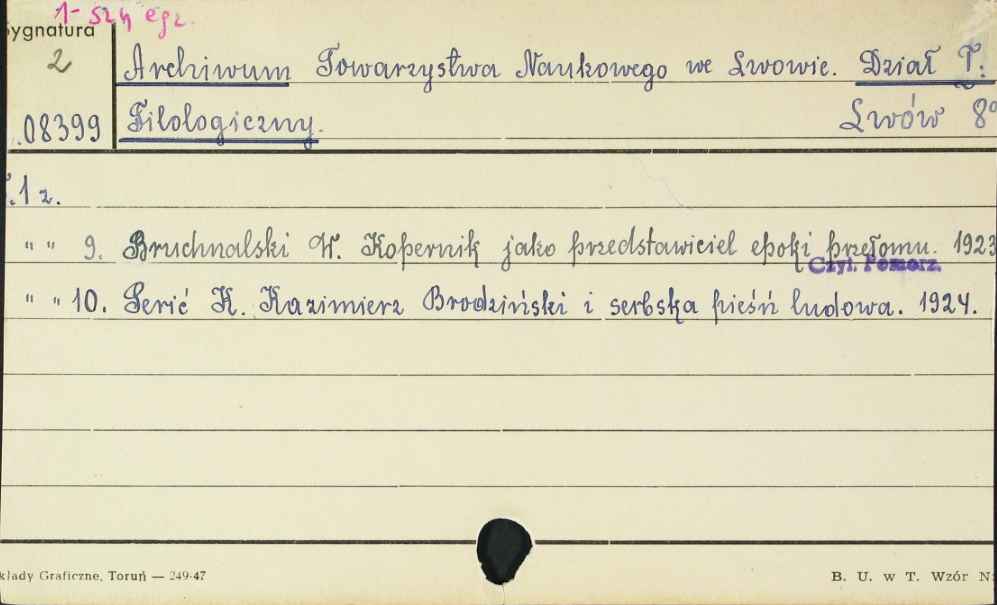 1-szy egz.
Sygnatura
2 Archiwum Towarzystwa Naukowego we Lwowie. Dział I:
08399 Filologiczny. Lwów 8º
T.1 z.
" " 9. Bruchnalski W. Kopernik jako przedstawiciel epoki przełomu. 1923
Czyt. Pomorz.
" " 10. Perić K. Kazimierz Brodziński i serbska pieśń ludowa. 1924.
kłady Graficzne, Toruń — 249-47 B. U. w T. Wzór N